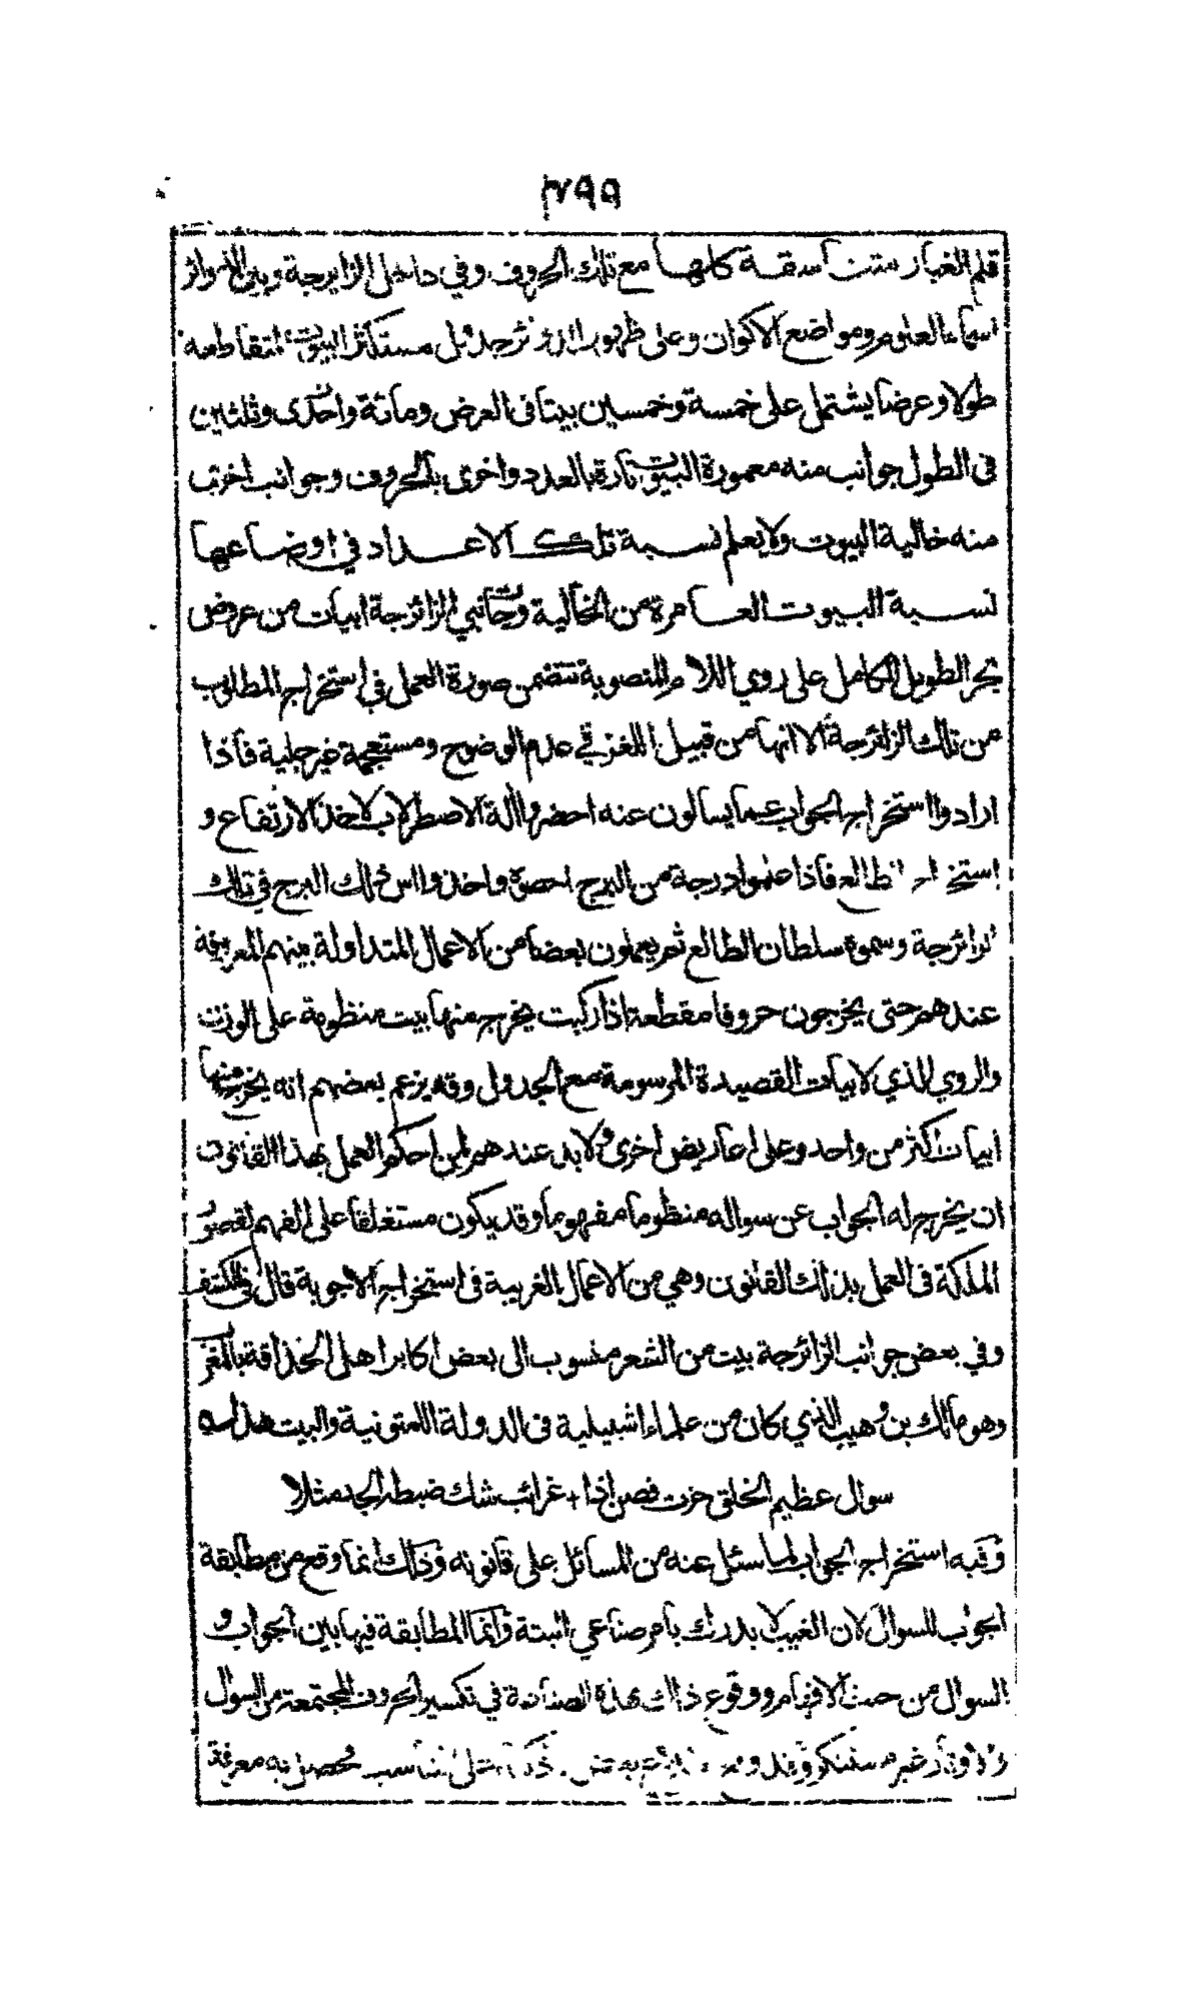 ٣٩٩
قلم الغبار متناسقة كلها مع تلك الحروف وفي داخل الزايرجة وبين الدوائر
اسماء العلوم ومواضع الاكوان وعلى ظهور الدوائر جدول مستكثر البيوت المتقاطعة
طولا وعرضا يشتمل على خمسة وخمسين بيتا فى العرض ومائة واحدى وثلثين
فى الطول جوانب منه معمورة البيوت تارة بالعدد واخرى بالحروف وجوانب اخرى
منه خالية البيوت ولا يعلم نسبة تلك الاعداد في اوضاعها
نسبة البيوت العامرة من الخالية وجانبي الزائرجة ابيات من عروض
بحر الطويل الكامل على روي اللام المنصوبة تتضمن صورة العمل في استخراج المطلوب
من تلك الزائرجة الا انها من قبيل اللغز في عدم الوضوح ومستعجمة غير جلية فاذا
ارادوا استخراج الجواب عما يسالون عنه احضروا الة الاصطرلاب لاخذ الارتفاع و
استخراج الطالع فاذا علموا درجة من البرج احصوه واخذوا اس ذلك البرج في تلك
الزائرجة وسموه سلطان الطالع ثم يعملون بعضا من الاعمال المتداولة بينهم المعروفة
عندهم حتى يخرجون حروفا مقطعة اذا ركبت يخرج منها بيت منظومة على الوزن
والروي الذي لابيات القصيدة المرسومة مع الجدول وقد يزعم بعضهم انه يخرج منها
ابيات اكثر من واحد وعلى اعاريض اخرى ولا بد عندهم لمن احكم العمل بهذا القانون
ان يخرج له الجواب عن سواله منظوما مفهوما وقد يكون مستغلقا على الفهم لقصور
الملكة فى العمل بذلك القانون وهي من الاعمال الغريبة فى استخراج الاجوبة قال في الكشف
وفي بعض جوانب الزائرجة بيت من الشعر منسوب الى بعض اكابر اهل الحذاقة بالمغرب
وهو مالك بن وهيب الذي كان من علماء اشبيلية فى الدولة اللمتونية والبيت هذا
سوال عظيم الخلق حزت فصن اذا + غرائب شك ضبطه الجد مثلا
وفيه استخراج الجواب لما سئل عنه من المسائل على قانونه وذلك انما وقع من مطابقة
الجواب للسوال لان الغيب لا يدرك بامر صناعي البتة وانما المطابقة فيها بين الجواب و
السوال من حيث الافهام ووقوع ذلك بهذه الصناعة في تكسير الحروف المجتمعة من السوال
والاوتار غير مستنكر وقد بعض تناسب يحصل به معرفة